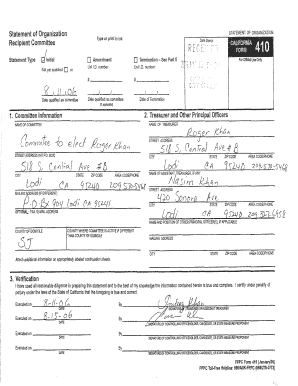 Statement of Organization
Recipient Committee
Type or print in ink
STATEMENT OF ORGANIZATION
Date Stamp
CALIFORNIA FORM 410
For Official Use Only
Statement Type
Initial
Amendment
Termination – See Part 5
Not yet qualified or
List I.D. number:
List I.D. number:
#
#
8-11-06
Date qualified as committee
Date qualified as committee
Date of Termination
1. Committee Information
2. Treasurer and Other Principal Officers
NAME OF COMMITTEE
Committe to elect Roger Khan
STREET ADDRESS (NO P.O. BOX)
518 S. Central Ave # B
CITY STATE ZIP CODE AREA CODE/PHONE
Lodi CA 95240
MAILING ADDRESS (IF DIFFERENT)
P.O Box 904 Lodi CA 95241
COUNTY OF DOMICILE
SJ
Attach additional information on appropriately labeled continuation sheets.
NAME OF TREASURER
Roger Khan
STREET ADDRESS
518 S. Central Ave # B
CITY STATE ZIP CODE AREA CODE/PHONE
Lodi CA 95240
NAME OF ASSISTANT TREASURER, IF ANY
Nasim Khan
STREET ADDRESS
420 Sonora Ave
CITY STATE ZIP CODE AREA CODE/PHONE
Lodi CA
NAME AND POSITION OF OTHER PRINCIPAL OFFICER(S), IF APPLICABLE
MAILING ADDRESS
CITY STATE ZIP CODE AREA CODE/PHONE
3. Verification
I have used all reasonable diligence in preparing this statement and to the best of my knowledge the information contained herein is true and complete. I certify under penalty of
perjury under the laws of the State of California that the foregoing is true and correct.
Executed on 8-11-06 By
DATE
Executed on 8-15-06 By
DATE
Executed on By
DATE
Executed on By
DATE
FPPC Form 410
FPPC Toll-Free Helpline: 866/ASK-FPPC